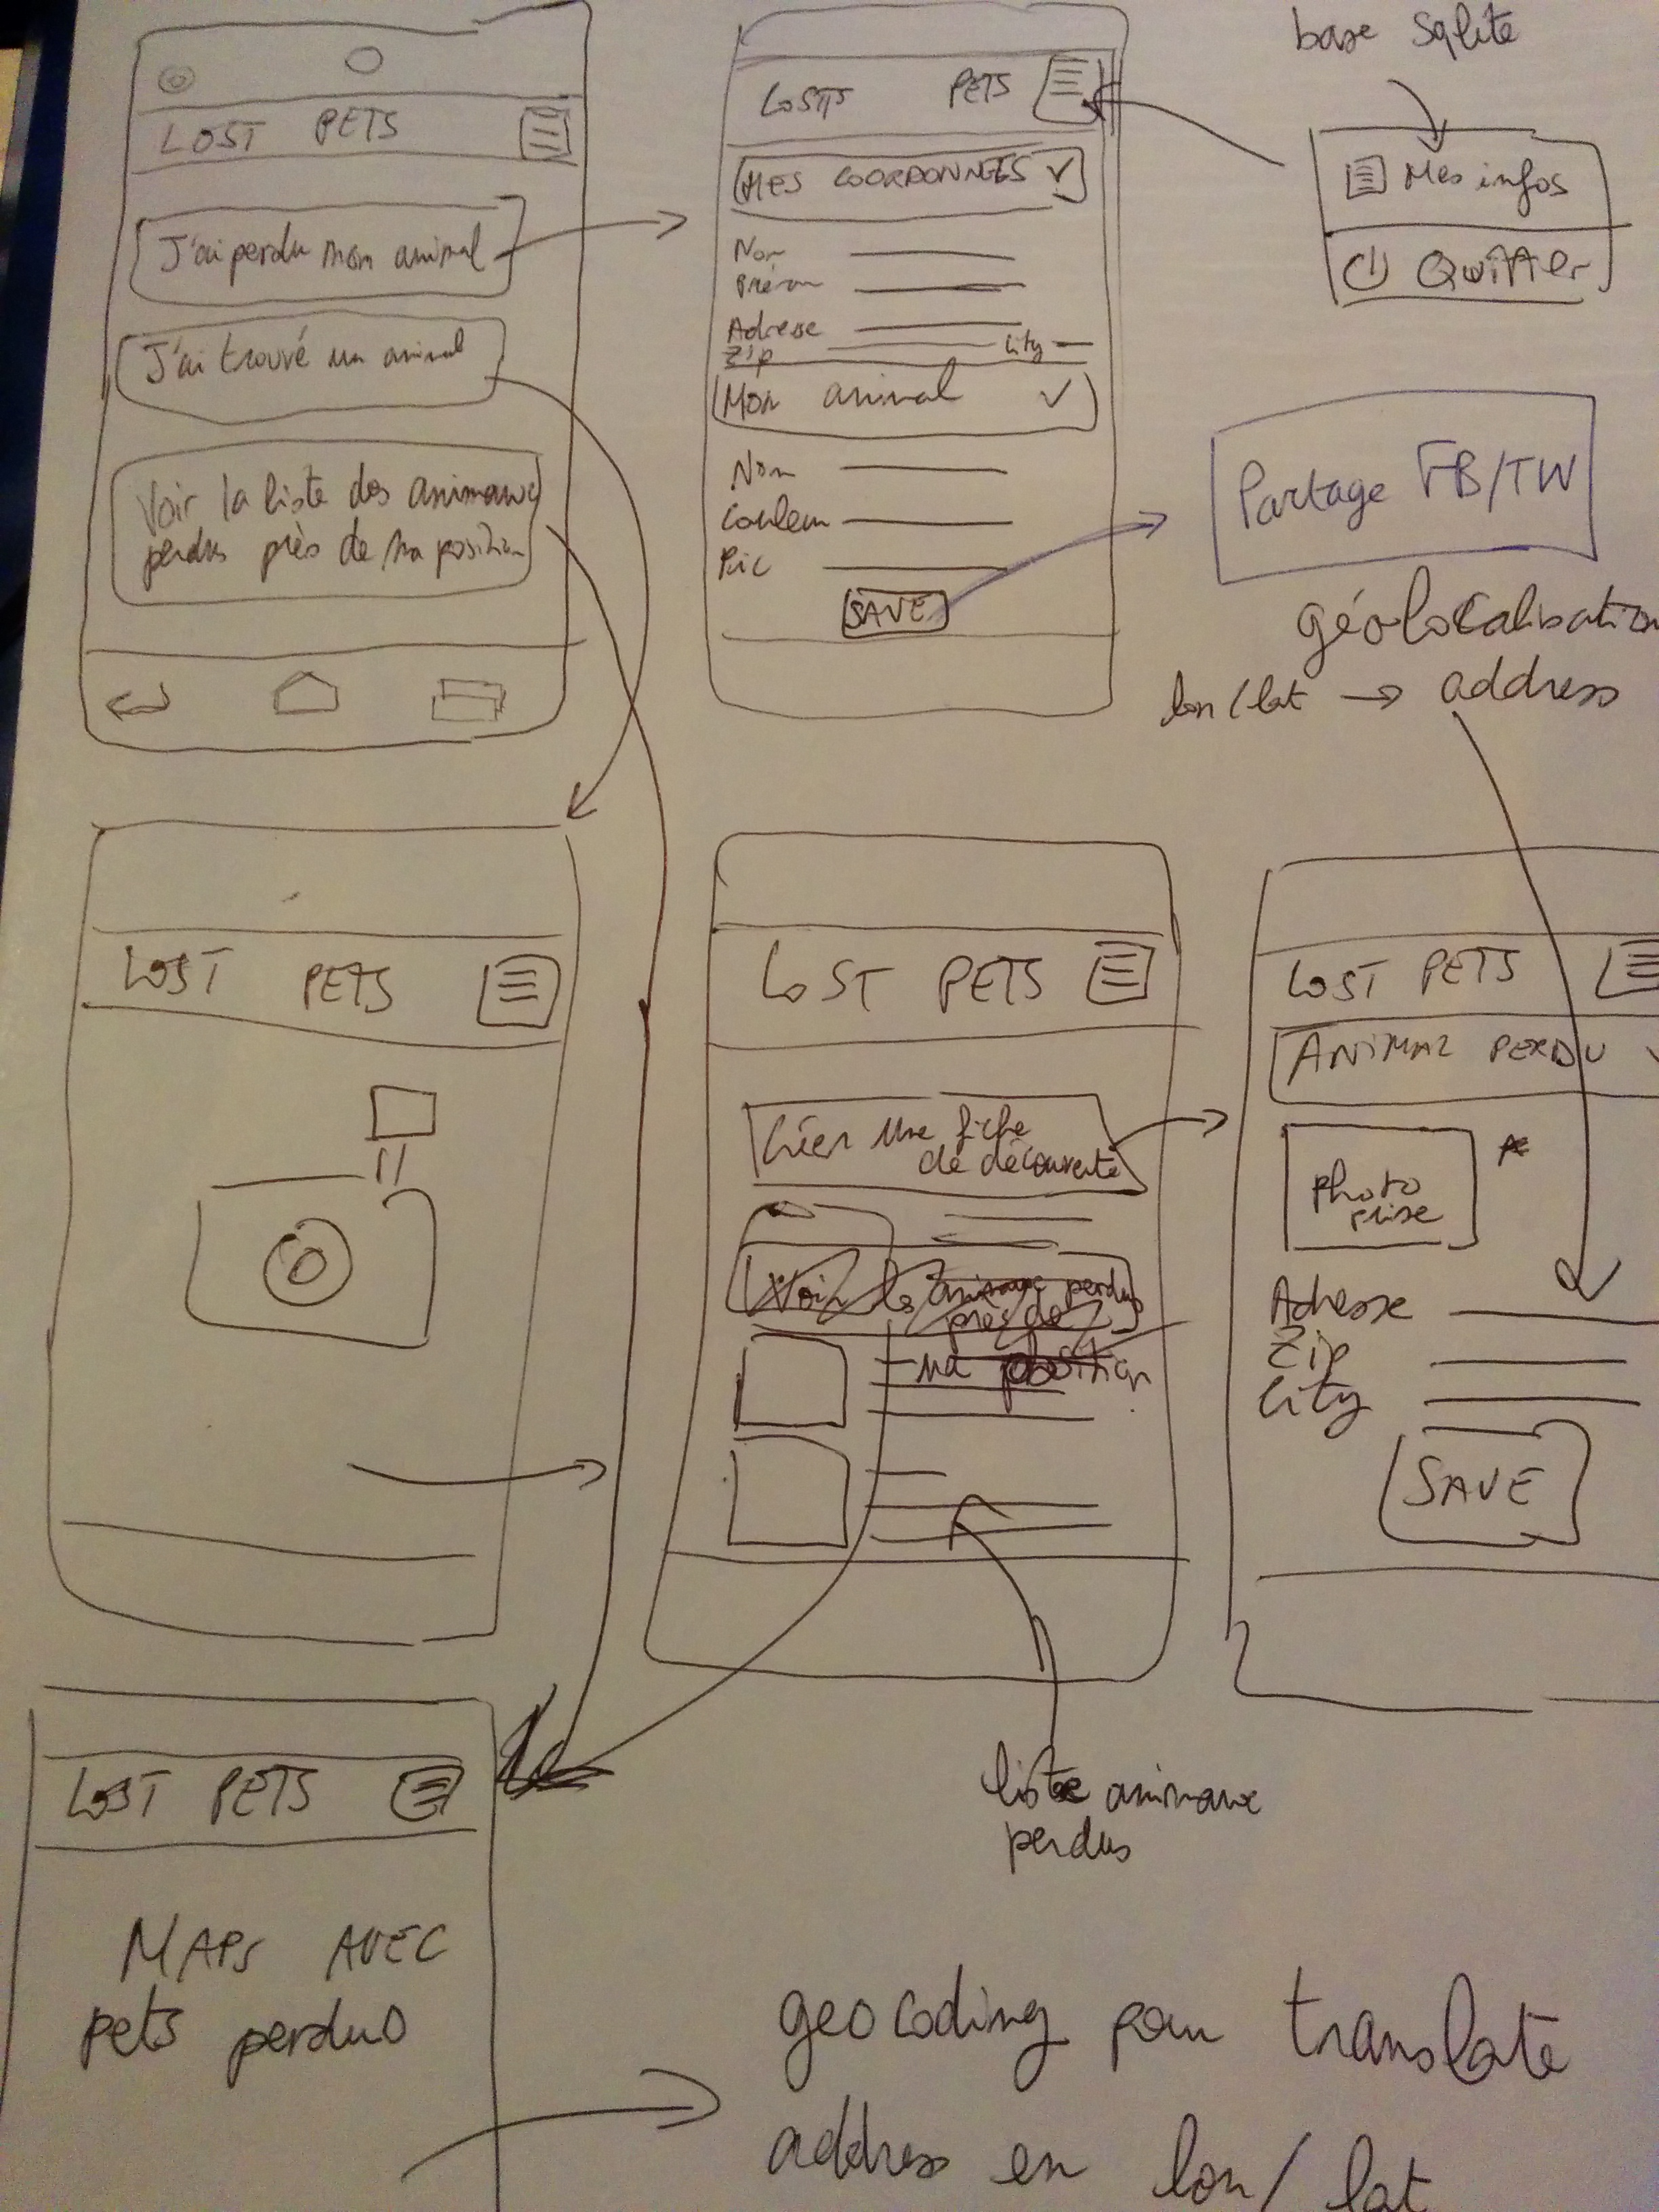 LOST PETS
J'ai perdu mon animal
J'ai trouvé un animal
Voir la liste des animaux
perdus près de ma position
LOSTS PETS
MES COORDONNÉES
Nom
Prénom
Adresse
Zip City
Mon animal
Nom
Couleur
Pic
SAVE
base Sqlite
Mes infos
Quitter
Partage FB/TW
géolocalisation
lon/lat → address
LOST PETS
LOST PETS
Créer une fiche
de découverte
Voir les animaux perdus
près de
ma position
liste animaux
perdus
LOST PETS
ANIMAL PERDU
photo
prise
Adresse
Zip
City
SAVE
LOST PETS
MAPS AVEC
pets perdus
geocoding pour translate
address en lon/lat